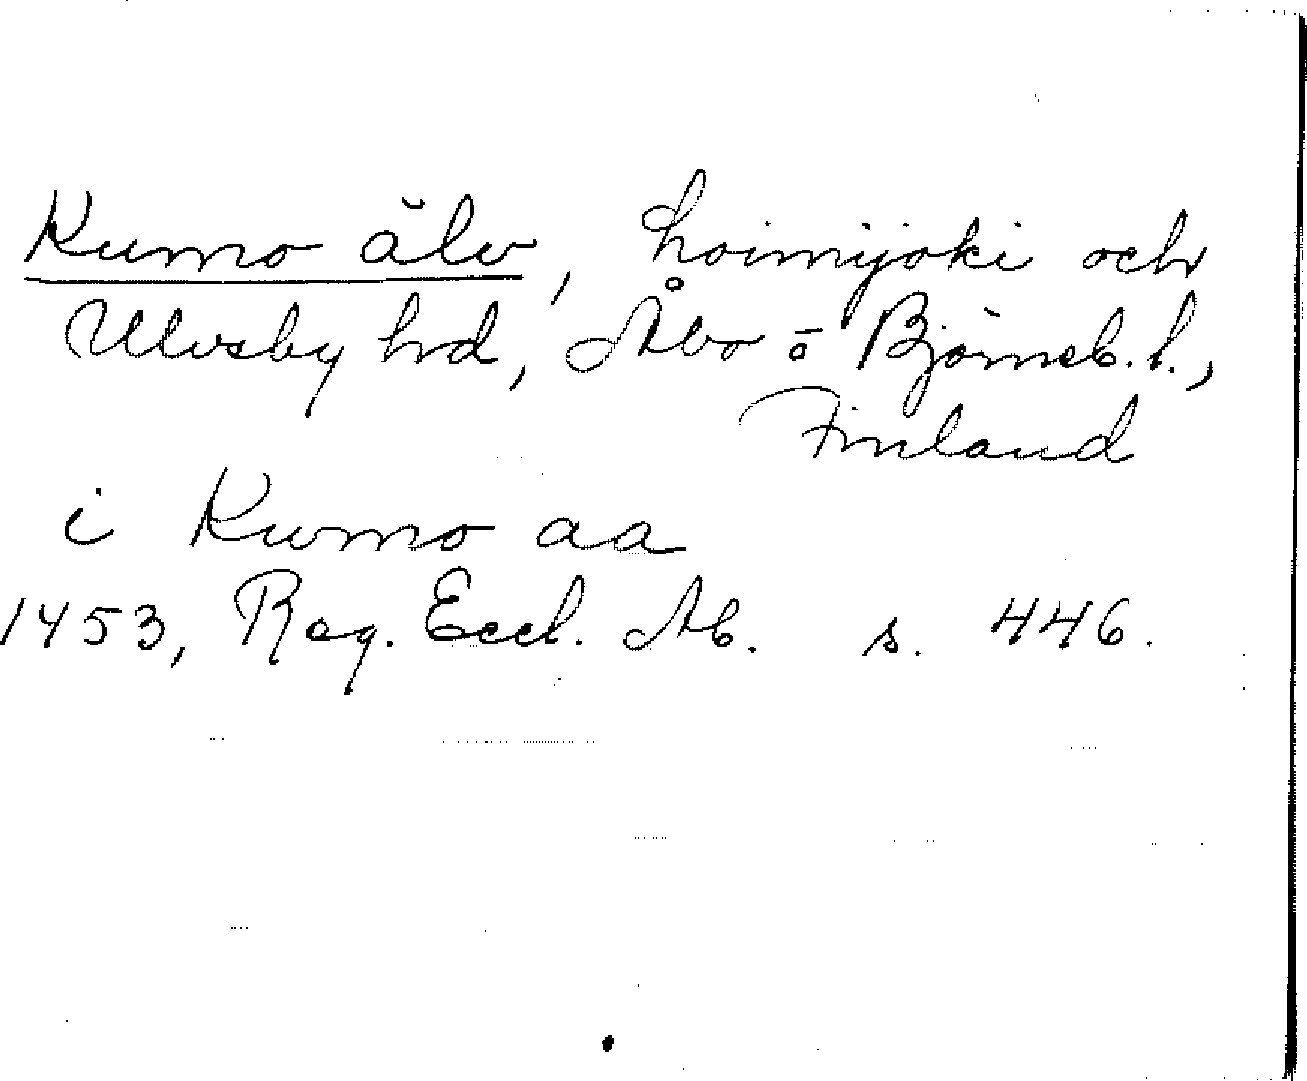 Kumo älv, Loimijoki och
Ulvsby hd, Åbo o Björneb. l.,
Finland
i Kumo aa
1453, Reg. Eccl. Ab. s. 446.